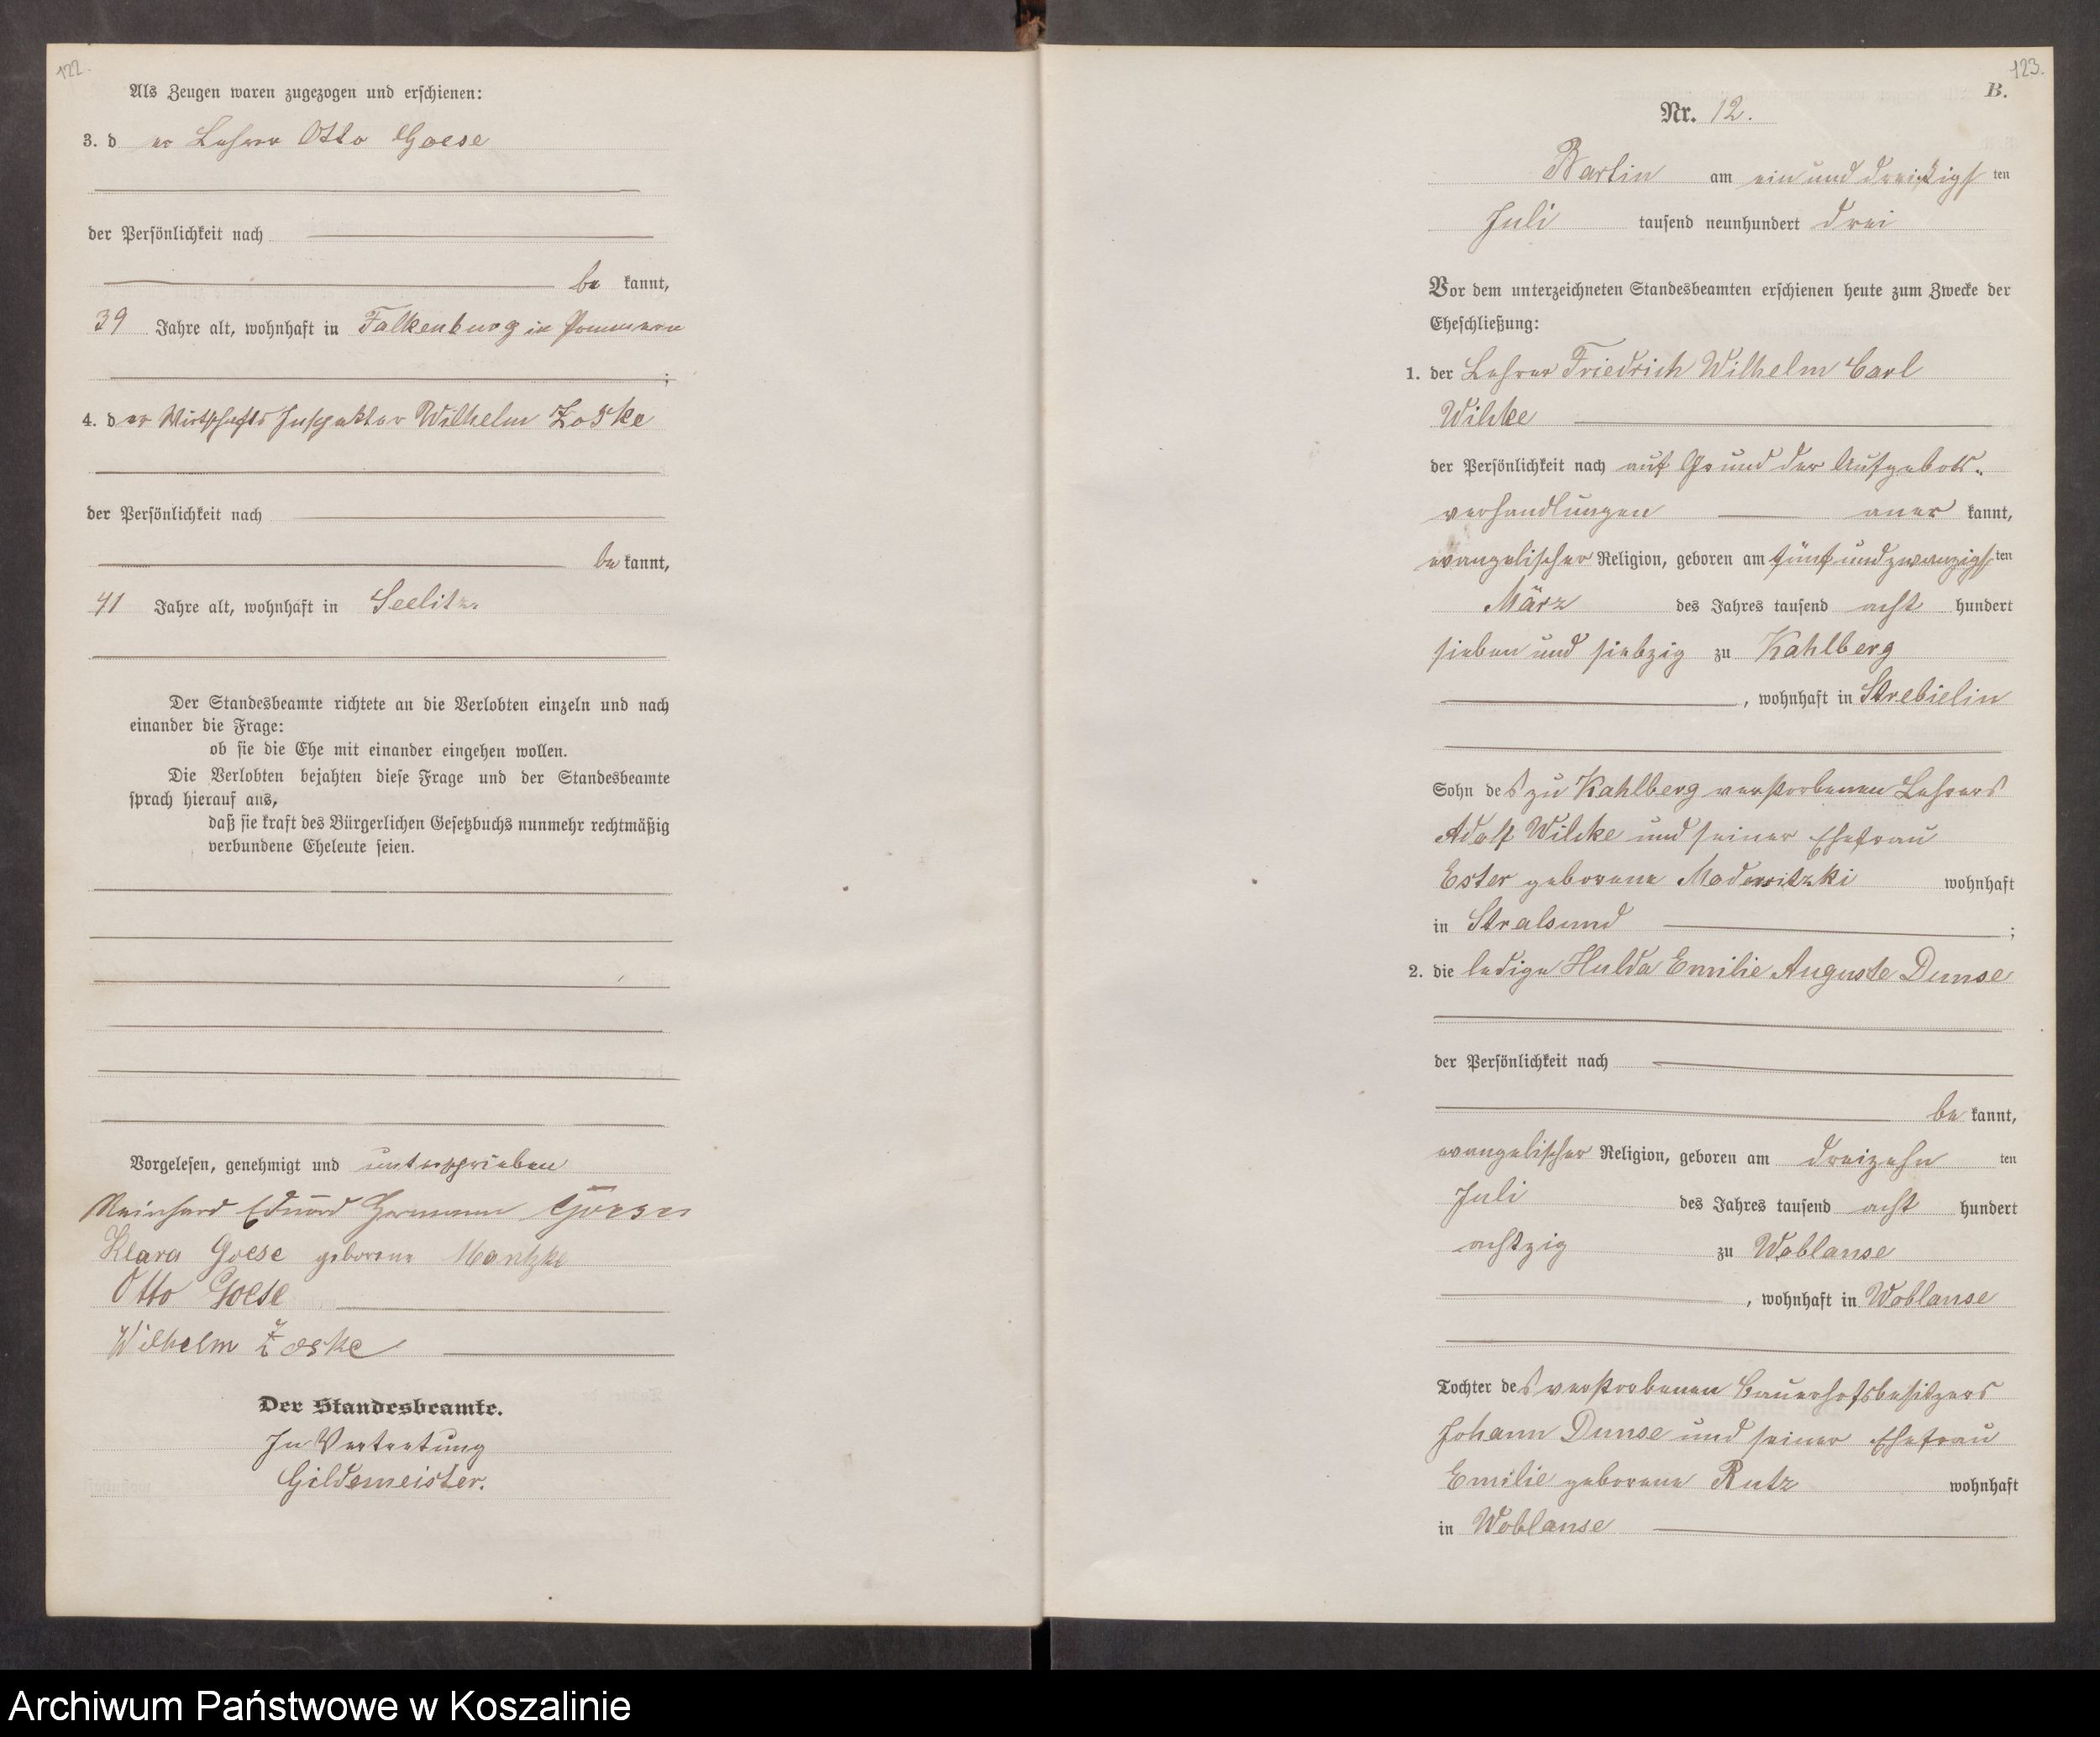 122.
Als Zeugen waren zugezogen und erschienen:
3. d er Lehrer Otto Goese
der Persönlichkeit nach
be kannt,
39 Jahre alt, wohnhaft in Falkenburg in Pommern
;
4. d er Wirtschafts Inspektor Wilhelm Zoske
der Persönlichkeit nach
be kannt,
41 Jahre alt, wohnhaft in Seelitz.
Der Standesbeamte richtete an die Verlobten einzeln und nach
einander die Frage:
ob sie die Ehe mit einander eingehen wollen.
Die Verlobten bejahten diese Frage und der Standesbeamte
sprach hierauf aus,
daß sie kraft des Bürgerlichen Gesetzbuchs nunmehr rechtmäßig
verbundene Eheleute seien.
Vorgelesen, genehmigt und unterschrieben
Reinhard Eduard Hermann
Klara Goese geborene Mantzke
Otto Goese
Wilhelm Zoske
Der Standesbeamte.
In Vertretung
Gildemeister.
123.
B.
Nr. 12.
Bartin am ein und dreißigsten
Juli tausend neunhundert drei
Vor dem unterzeichneten Standesbeamten erschienen heute zum Zwecke der
Eheschließung:
1. der Lehrer Friedrich Wilhelm Carl
Wilcke
der Persönlichkeit nach auf Grund der Aufgebots-
verhandlungen aner kannt,
evangelischer Religion, geboren am fünf und zwanzigsten
März des Jahres tausend acht hundert
sieben und siebzig zu Kahlberg
, wohnhaft in Strebielin
Sohn des zu Kahlberg verstorbenen Lehrers
Adolf Wilcke und seiner Ehefrau
Ester geborene wohnhaft
in Stralsund ;
2. die ledige Hulda Emilie Auguste Dunse
der Persönlichkeit nach
be kannt,
evangelischer Religion, geboren am dreizehn ten
Juli des Jahres tausend acht hundert
achtzig zu Woblanse
, wohnhaft in Woblanse
Tochter des verstorbenen Bauerhofsbesitzers
Johann Dunse und seiner Ehefrau
Emilie geborene Rutz wohnhaft
in Woblanse
Archiwum Państwowe w Koszalinie